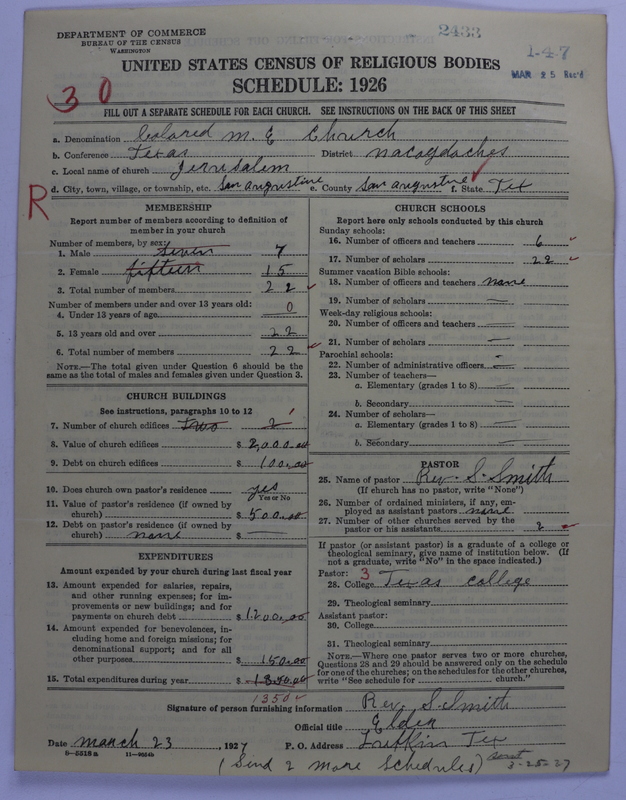 DEPARTMENT OF COMMERCE
BUREAU OF THE CENSUS
WASHINGTON
2433
1-4-7
MAR 25 Rec'd
UNITED STATES CENSUS OF RELIGIOUS BODIES
SCHEDULE: 1926
30
FILL OUT A SEPARATE SCHEDULE FOR EACH CHURCH. SEE INSTRUCTIONS ON THE BACK OF THIS SHEET
a. Denomination Colored M. E Church
b. Conference Texas District Nacogdoches
c. Local name of church Jerusalem
d. City, town, village, or township, etc. San Augustine e. County San Augustine f. State Tex
R
MEMBERSHIP
Report number of members according to definition of member in your church
Number of members, by sex:
1. Male seven 7
2. Female fifteen 15
3. Total number of members 22
Number of members under and over 13 years old:
4. Under 13 years of age 0
5. 13 years old and over 22
6. Total number of members 22
NOTE.—The total given under Question 6 should be
same as the total of males and females given under Question 3.
CHURCH BUILDINGS
See instructions, paragraphs 10 to 12
7. Number of church edifices two 2 1
8. Value of church edifices $ 2,000.00
9. Debt on church edifices $ 100.00
10. Does church own pastor's residence yes
Yes or No
11. Value of pastor's residence (if owned by
church) $ 500.00
12. Debt on pastor's residence (if owned by
church) none $ —
EXPENDITURES
Amount expended by your church during last fiscal year
13. Amount expended for salaries, repairs,
and other running expenses; for im-
provements or new buildings; and for
payments on church debt $ 1200.00
14. Amount expended for benevolences, in-
cluding home and foreign missions; for
denominational support; and for all
other purposes $ 150.00
15. Total expenditures during year $ 1350.00
1350
CHURCH SCHOOLS
Report here only schools conducted by this church
Sunday schools:
16. Number of officers and teachers 6
17. Number of scholars 22
Summer vacation Bible schools:
18. Number of officers and teachers none
19. Number of scholars —
Week-day religious schools:
20. Number of officers and teachers —
21. Number of scholars —
Parochial schools:
22. Number of administrative officers —
23. Number of teachers—
a. Elementary (grades 1 to 8) —
b. Secondary —
24. Number of scholars—
a. Elementary (grades 1 to 8) —
b. Secondary —
PASTOR
25. Name of pastor Rev. S. Smith
(If church has no pastor, write "None")
26. Number of ordained ministers, if any, em-
ployed as assistant pastors none
27. Number of other churches served by the
pastor or his assistants 2
If pastor (or assistant pastor) is a graduate of a college or
theological seminary, give name of institution below. (If
not a graduate, write "No" in the space indicated.)
Pastor: 3
28. College Texas College
29. Theological seminary
Assistant pastor:
30. College
31. Theological seminary
NOTE.—Where one pastor serves two or more churches,
Questions 28 and 29 should be answered only on the schedule
for one of the churches; on the schedules for the other churches,
write "See schedule for church."
Signature of person furnishing information Rev. S. Smith
Official title Elder
Date March 23, 1927 P. O. Address Lufkin Tex
8-5518 a
(Send 2 more schedules)
3-25-27